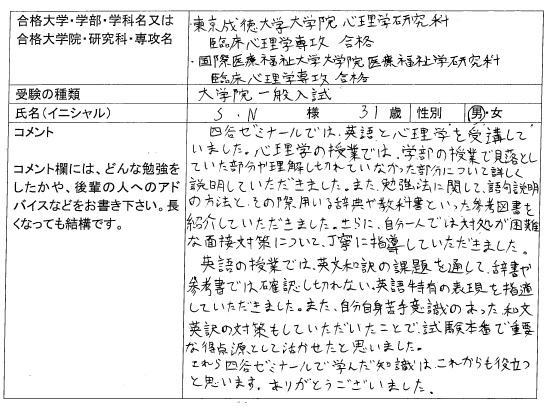 合格大学・学部・学科名又は
合格大学院・研究科・専攻名
・東京成徳大学大学院 心理学研究科
臨床心理学専攻 合格
・国際医療福祉大学大学院 医療福祉学研究科
臨床心理学専攻 合格
受験の種類
大学院一般入試
氏名(イニシャル)
S.N 様 31歳 性別 男・女
コメント
コメント欄には、どんな勉強を
したかや、後輩の人へのアド
バイスなどをお書き下さい。長
くなっても結構です。
四谷ゼミナールでは、英語と心理学を受講して
いました。心理学の授業では、学部の授業で見落とし
ていた部分や理解し切れていなかった部分について詳しく
説明していただきました。また、勉強法に関して、語句説明
の方法と、その際用いる辞典や教科書といった参考図書を
紹介していただきました。さらに、自分一人では対処が困難
な面接対策について、丁寧に指導していただきました。
英語の授業では、英文和訳の課題を通して、辞書や
参考書では確認し切れない英語特有の表現を指導
していただきました。また、自分自身苦手意識のあった和文
英訳の対策もしていただいたことで、試験本番で重要
な得点源として活かせたと思いました。
これら四谷ゼミナールで学んだ知識は、これからも役立つ
と思います。ありがとうございました。